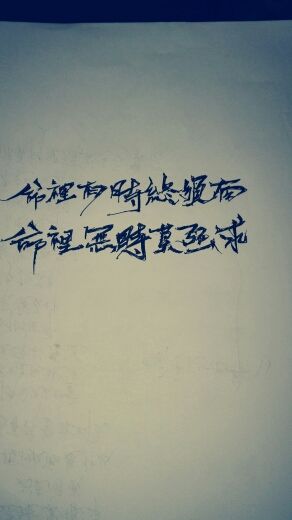 命裡有時終須有
命裡無時莫強求